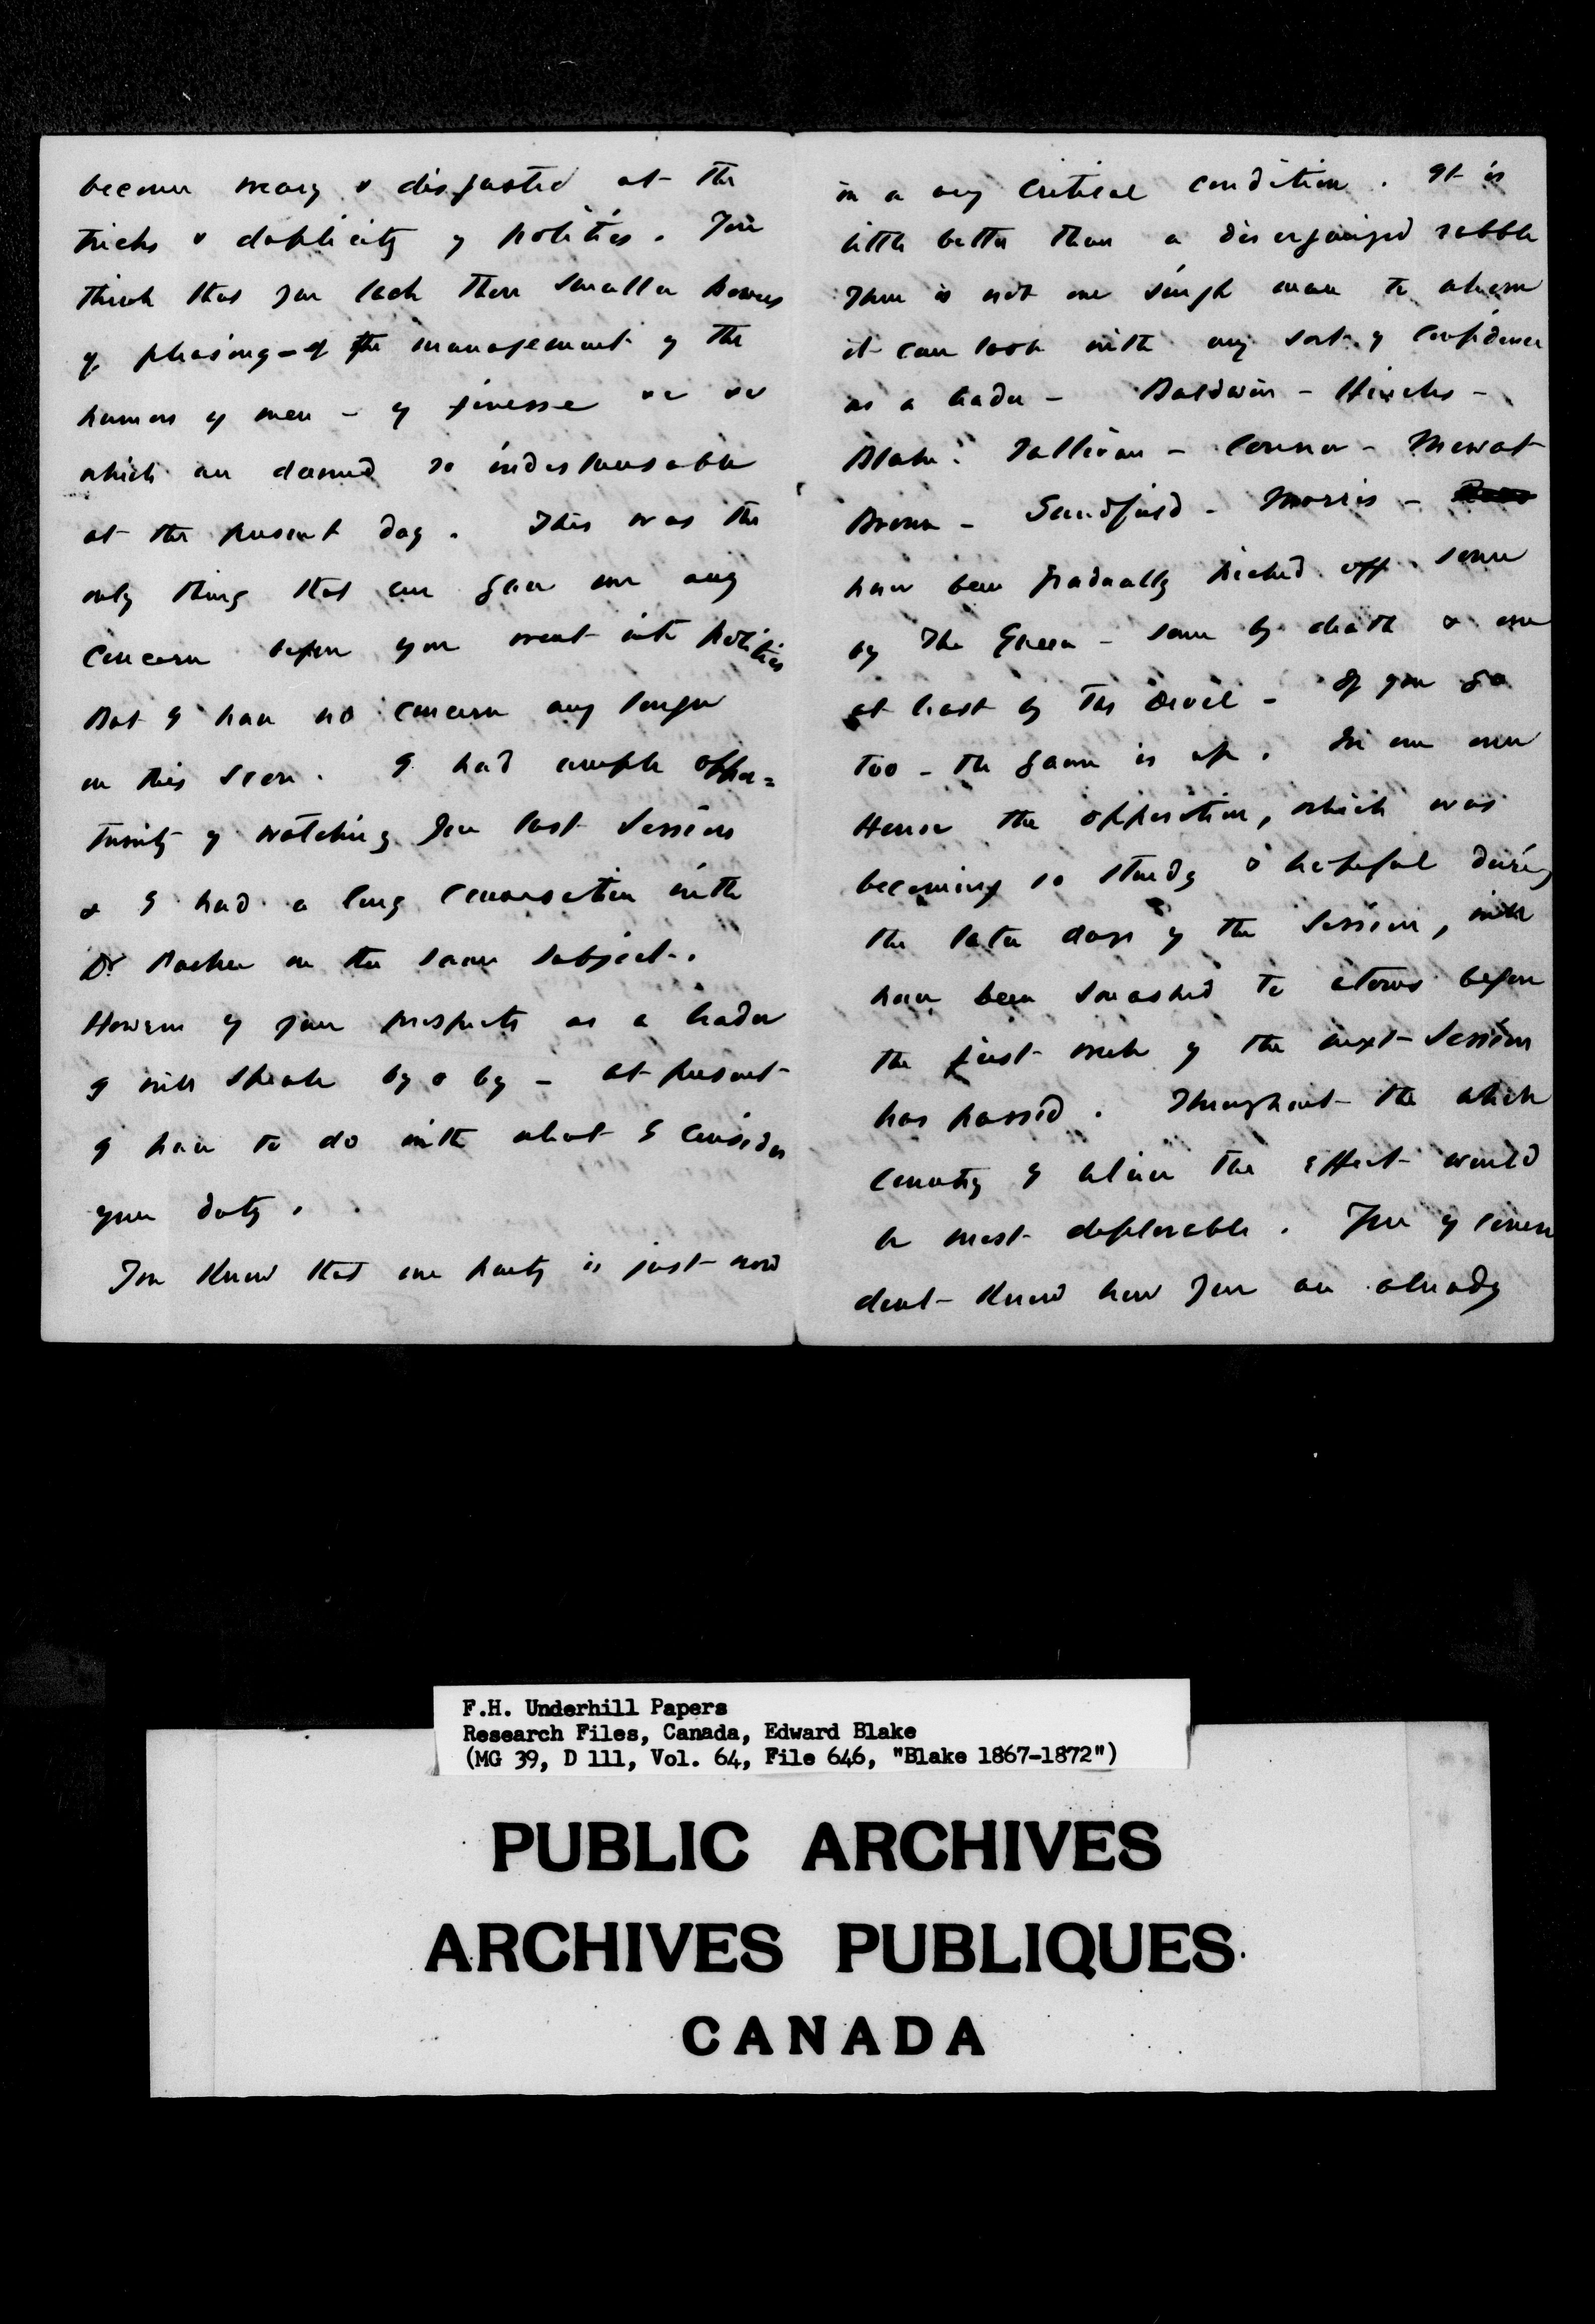 become weary & disgusted at the
tricks & duplicity of politics. You
think that you lack those smaller powers
of pleasing - of the management of the
humors of men - of finesse &c &c
which are deemed so indispensable
at the present day. This was the
only thing that ever gave me any
concern before you went into politics
But I have no concern any longer
on this score. I had ample oppor=
tunity of watching you last Session
& I had a long conversation with
Dr Parker on the same subject.
However of your prospects as a leader
I will speak by & by - at present
I have to do with what I consider
your duty.
You know that our party is just now
in a very critical condition. It is
little better than a disorganized rabble
There is not one single man to whom
it can look with any sort of confidence
as a leader - Baldwin - Hincks -
Blake - Sullivan - Connor - Mowat
Brown - Sandfield - Morris -
have been gradually picked off some
by the Queen - some by death & one
at least by the Devil - If you go
too - the game is up. In our own
House the opposition, which was
becoming so sturdy & hopeful during
the later days of the Session, will
have been smashed to atoms before
the first week of the next Session
has passed. Throughout the whole
Country I believe the effect would
be most deplorable. You of course
dont know how you are already
F.H. Underhill Papers
Research Files, Canada, Edward Blake
(MG 39, D 111, Vol. 64, File 646, "Blake 1867-1872")
PUBLIC ARCHIVES
ARCHIVES PUBLIQUES
CANADA